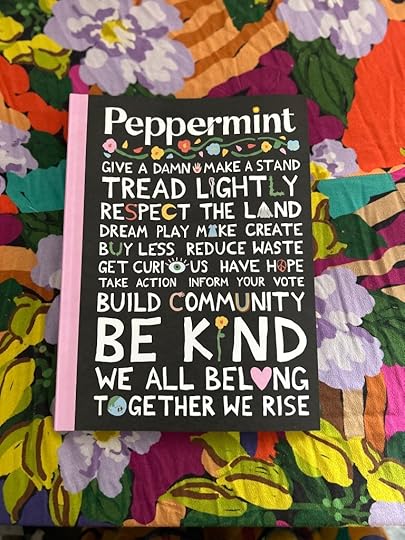 Peppermint
GIVE A DAMN MAKE A STAND
TREAD LIGHTLY
RESPECT THE LAND
DREAM PLAY MAKE CREATE
BUY LESS REDUCE WASTE
GET CURIOUS HAVE HOPE
TAKE ACTION INFORM YOUR VOTE
BUILD COMMUNITY
BE KIND
WE ALL BELONG
TOGETHER WE RISE